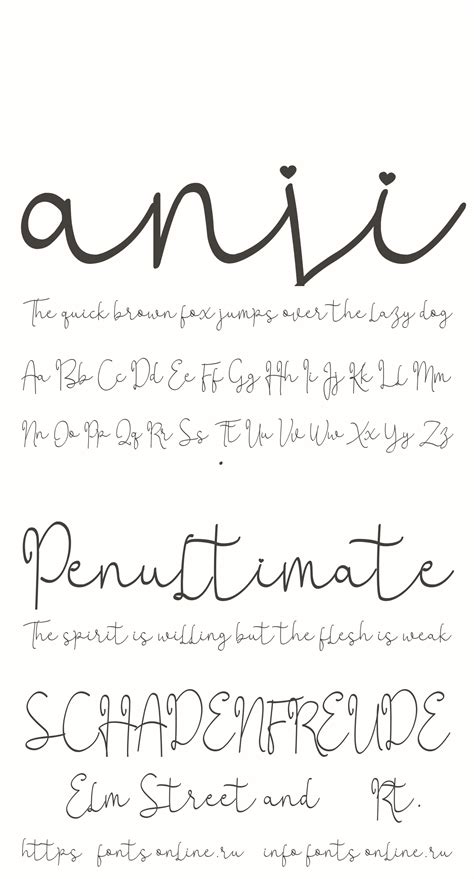 anji
The quick brown fox jumps over the lazy dog
Aa Bb Cc Dd Ee Ff Gg Hh Ii Jj Kk Ll Mm
Nn Oo Pp Qq Rr Ss Tt Uu Vv Ww Xx Yy Zz
.
Penultimate
The spirit is willing but the flesh is weak
SCHADENFREUDE
Elm Street and Rt.
https fontsonline.ru infofontsonline.ru